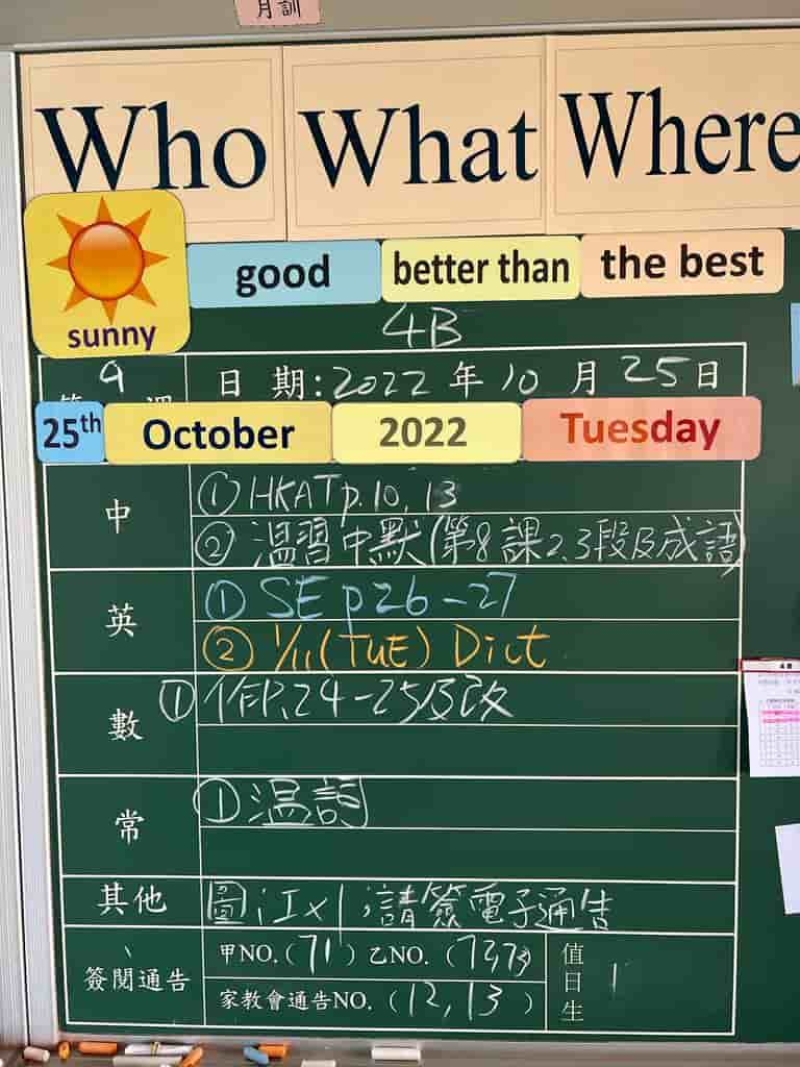 月訓
Who What Where
sunny
good better than the best
4B
9
日期:2022年10月25日
25th October 2022 Tuesday
中
① HKAT p.10, 13
② 溫習中默(第8課2.3段及成語)
英
① SE p26-27
② 1/11 (TUE) Dict
數
① 作P.24-25及改
常
① 溫詞
其他
圖:I×1;請簽電子通告
簽閱通告
甲NO.(71) 乙NO.(72,73)
家教會通告NO.(12,13)
值日生
1